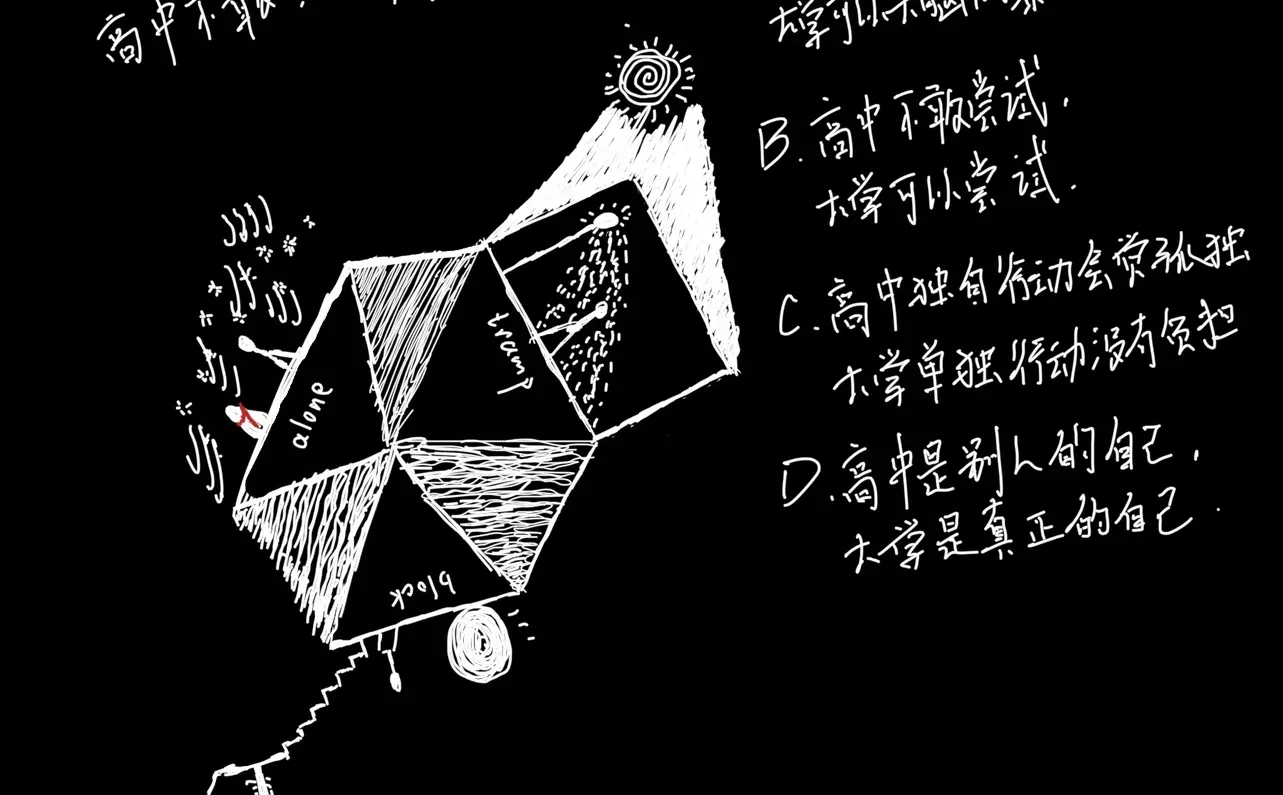 高中不敢
大学可以大脑
B. 高中不敢尝试，
大学可以尝试.
C. 高中独自行动会觉孤独
大学单独行动没有负担
D. 高中是别人的自己，
大学是真正的自己.
tramp
alone
block